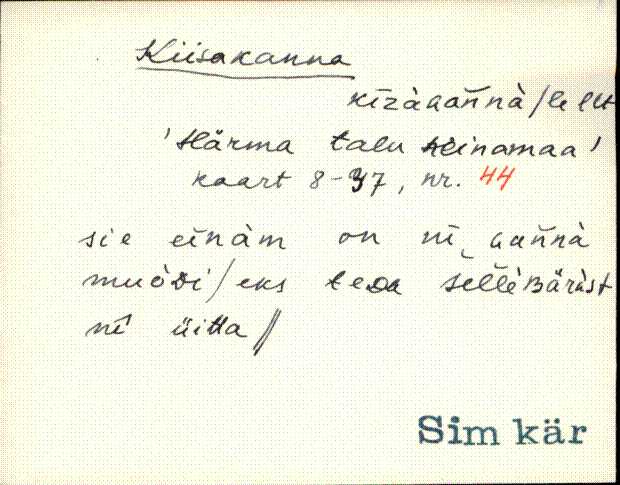 Kiisakanna
kīzàɢan̄nà / le llt
'Härma talu heinamaa'
kaart 8-37, nr. 44
sie einàm on nī ɢan̄nà
muòᴅi / eks teᴅa sel̄lèʙäràst
nī üitta //
Sim kär